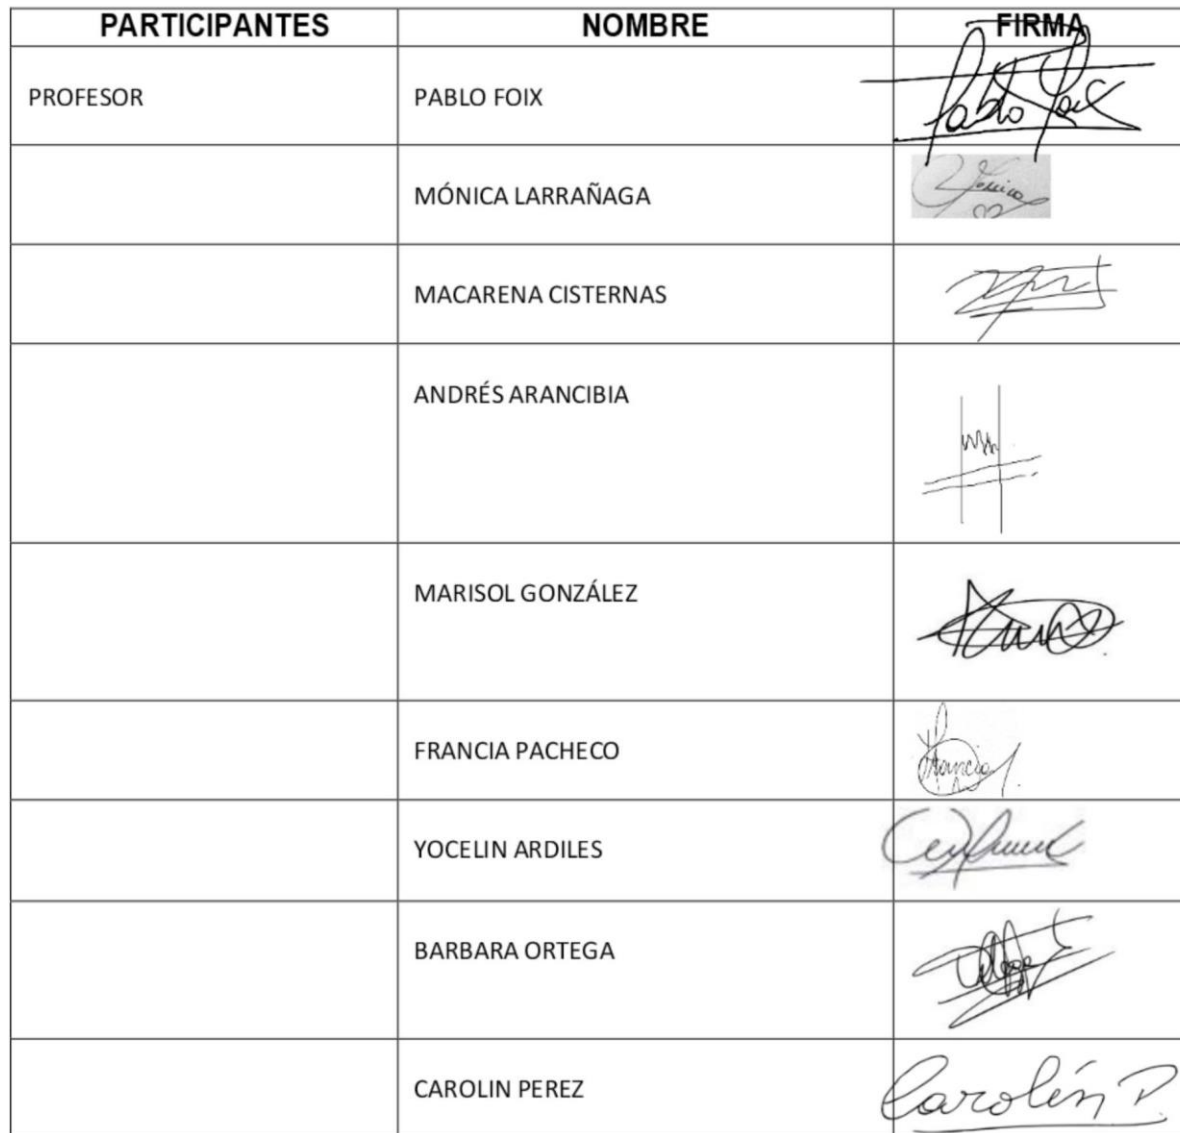 PARTICIPANTES NOMBRE FIRMA
PROFESOR PABLO FOIX Pablo Foix
MÓNICA LARRAÑAGA Monica
MACARENA CISTERNAS
ANDRÉS ARANCIBIA
MARISOL GONZÁLEZ
FRANCIA PACHECO Francia
YOCELIN ARDILES
BARBARA ORTEGA
CAROLIN PEREZ Carolin P.